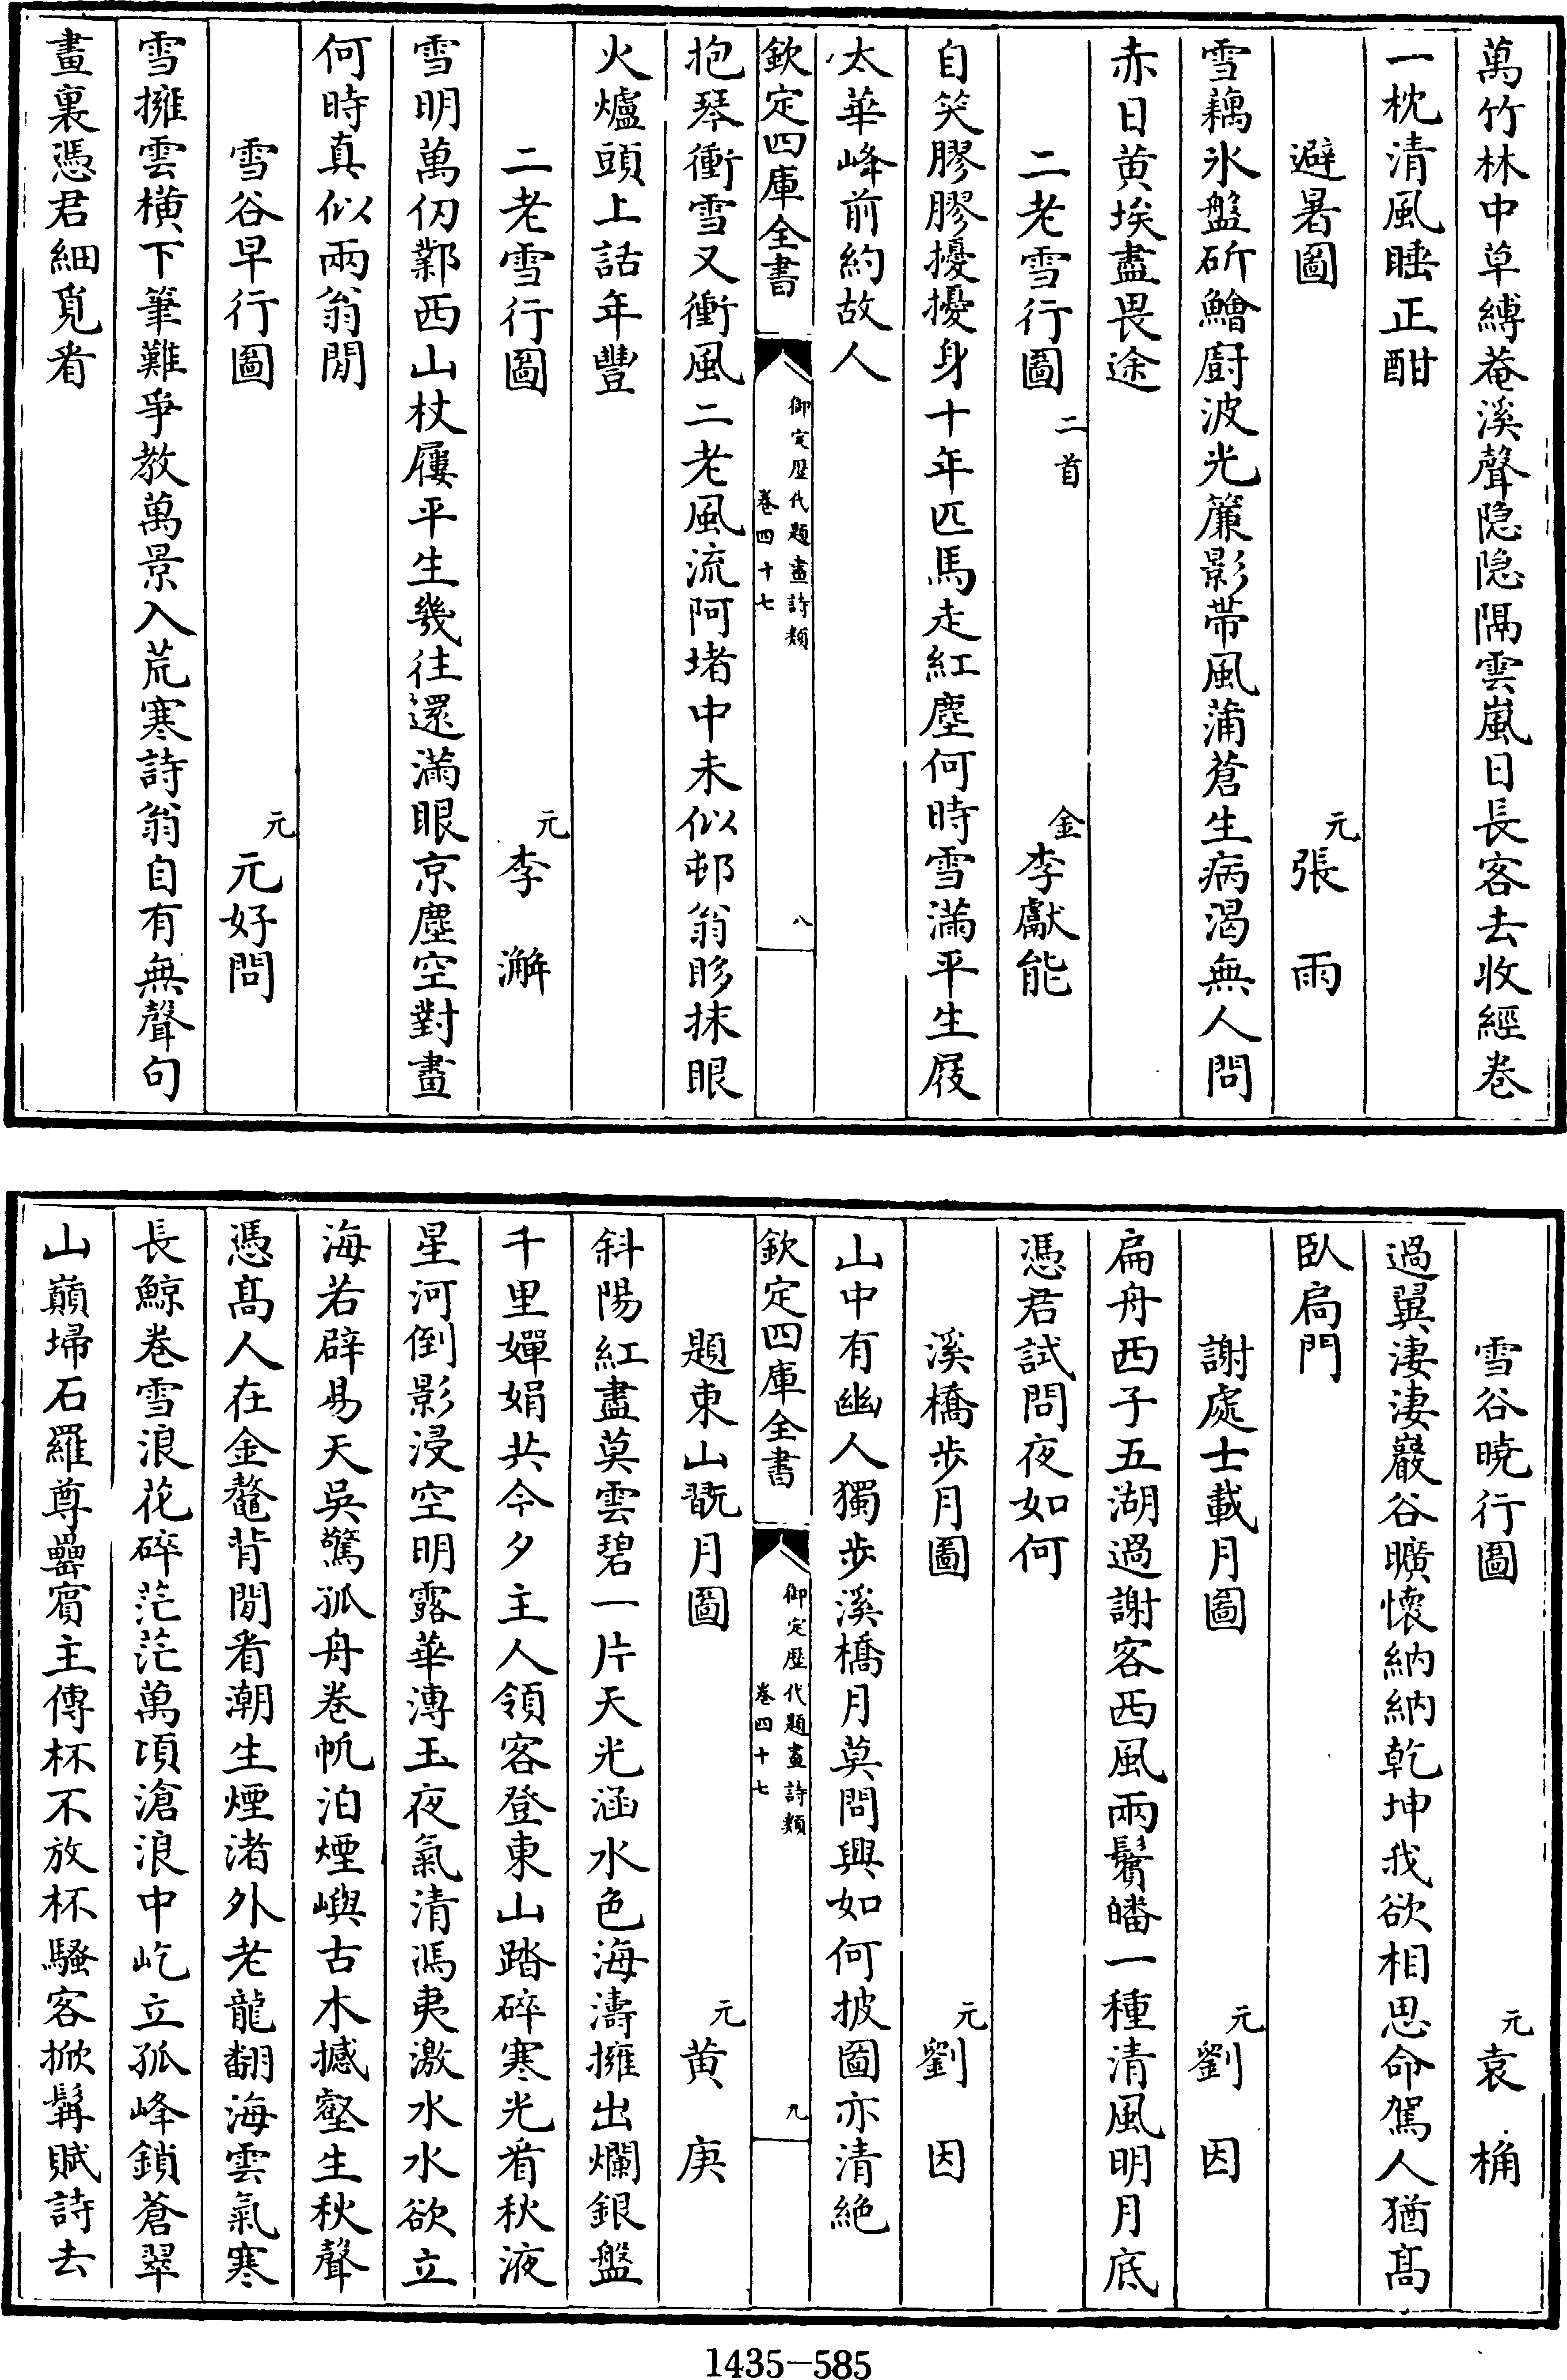 萬竹林中草縛菴溪聲隐隐隔雲嵐日長客去收經卷
一枕清風睡正酣
避暑圖 元 張雨
雪藕氷盤斫鱠廚波光簾影帶風蒲蒼生病渴無人問
赤日黄埃盡畏途
二老雪行圖 二首 金 李獻能
自笑膠膠擾擾身十年匹馬走紅塵何時雪滿平生屐
太華峰前約故人
欽定四庫全書 御定歴代題畫詩類 卷四十七 八
抱琴衝雪又衝風二老風流阿堵中未似邨翁眵抹眼
火爐頭上話年豐
二老雪行圖 元 李澥
雪明萬仞鄴西山杖屨平生幾往還滿眼京塵空對畫
何時真似兩翁閒
雪谷早行圖 元 元好問
雪擁雲橫下筆難爭教萬景入荒寒詩翁自有無聲句
畫裏憑君細覓看
雪谷曉行圖 元 袁桷
過翼淒淒巖谷曠懷納納乾坤我欲相思命駕人猶髙
臥扃門
謝處士載月圖 元 劉因
扁舟西子五湖過謝客西風兩鬢皤一種清風明月底
憑君試問夜如何
溪橋步月圖 元 劉因
山中有幽人獨步溪橋月莫問興如何披圖亦清絶
欽定四庫全書 御定歴代題畫詩類 卷四十七 九
題東山翫月圖 元 黄庚
斜陽紅盡莫雲碧一片天光涵水色海濤擁出爛銀盤
千里嬋娟共今夕主人領客登東山踏碎寒光看秋液
星河倒影浸空明露華漙玉夜氣清馮夷激水水欲立
海若辟易天吳驚孤舟卷帆泊煙嶼古木撼壑生秋聲
憑髙人在金鼇背閒看潮生煙渚外老龍翻海雲氣寒
長鯨卷雪浪花碎茫茫萬頃滄浪中屹立孤峰鎖蒼翠
山巔埽石羅尊罍賔主傳杯不放杯騷客掀髯賦詩去
1435—585